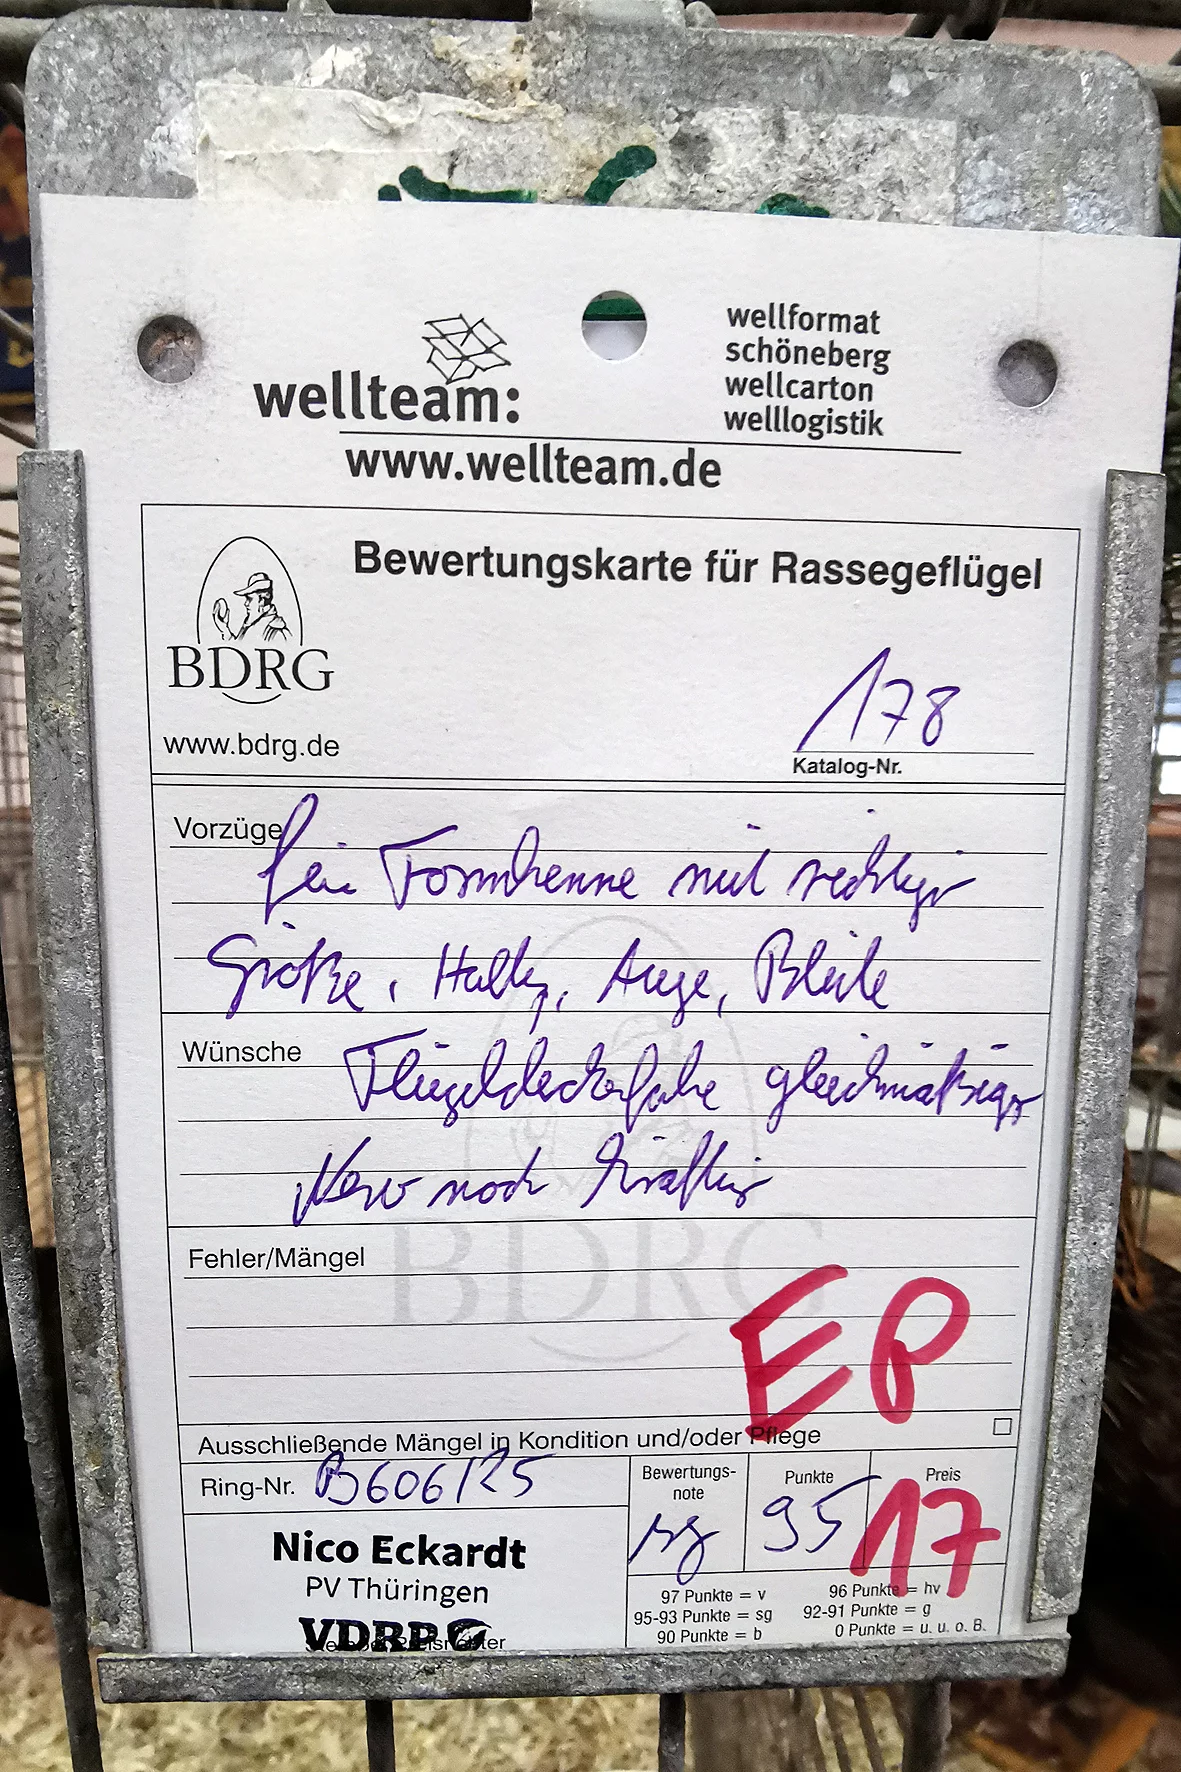 wellteam:
www.wellteam.de
wellformat
schöneberg
wellcarton
welllogistik
Bewertungskarte für Rassegeflügel
BDRG
www.bdrg.de
178
Katalog-Nr.
Vorzüge
fein Formhenne mit richtiger
Größe, Haltg, Auge, Breite
Wünsche
Flügeldeckfarbe gleichmäßiger
noch kräftiger
Fehler/Mängel
BDRG
EP
Ausschließende Mängel in Kondition und/oder Pflege
Ring-Nr. B606125
Bewertungs-
note
sg
Punkte
95
Preis
17
Nico Eckardt
PV Thüringen
VDRP
97 Punkte = v 96 Punkte = hv
95-93 Punkte = sg 92-91 Punkte = g
90 Punkte = b 0 Punkte = u. u. o. B.